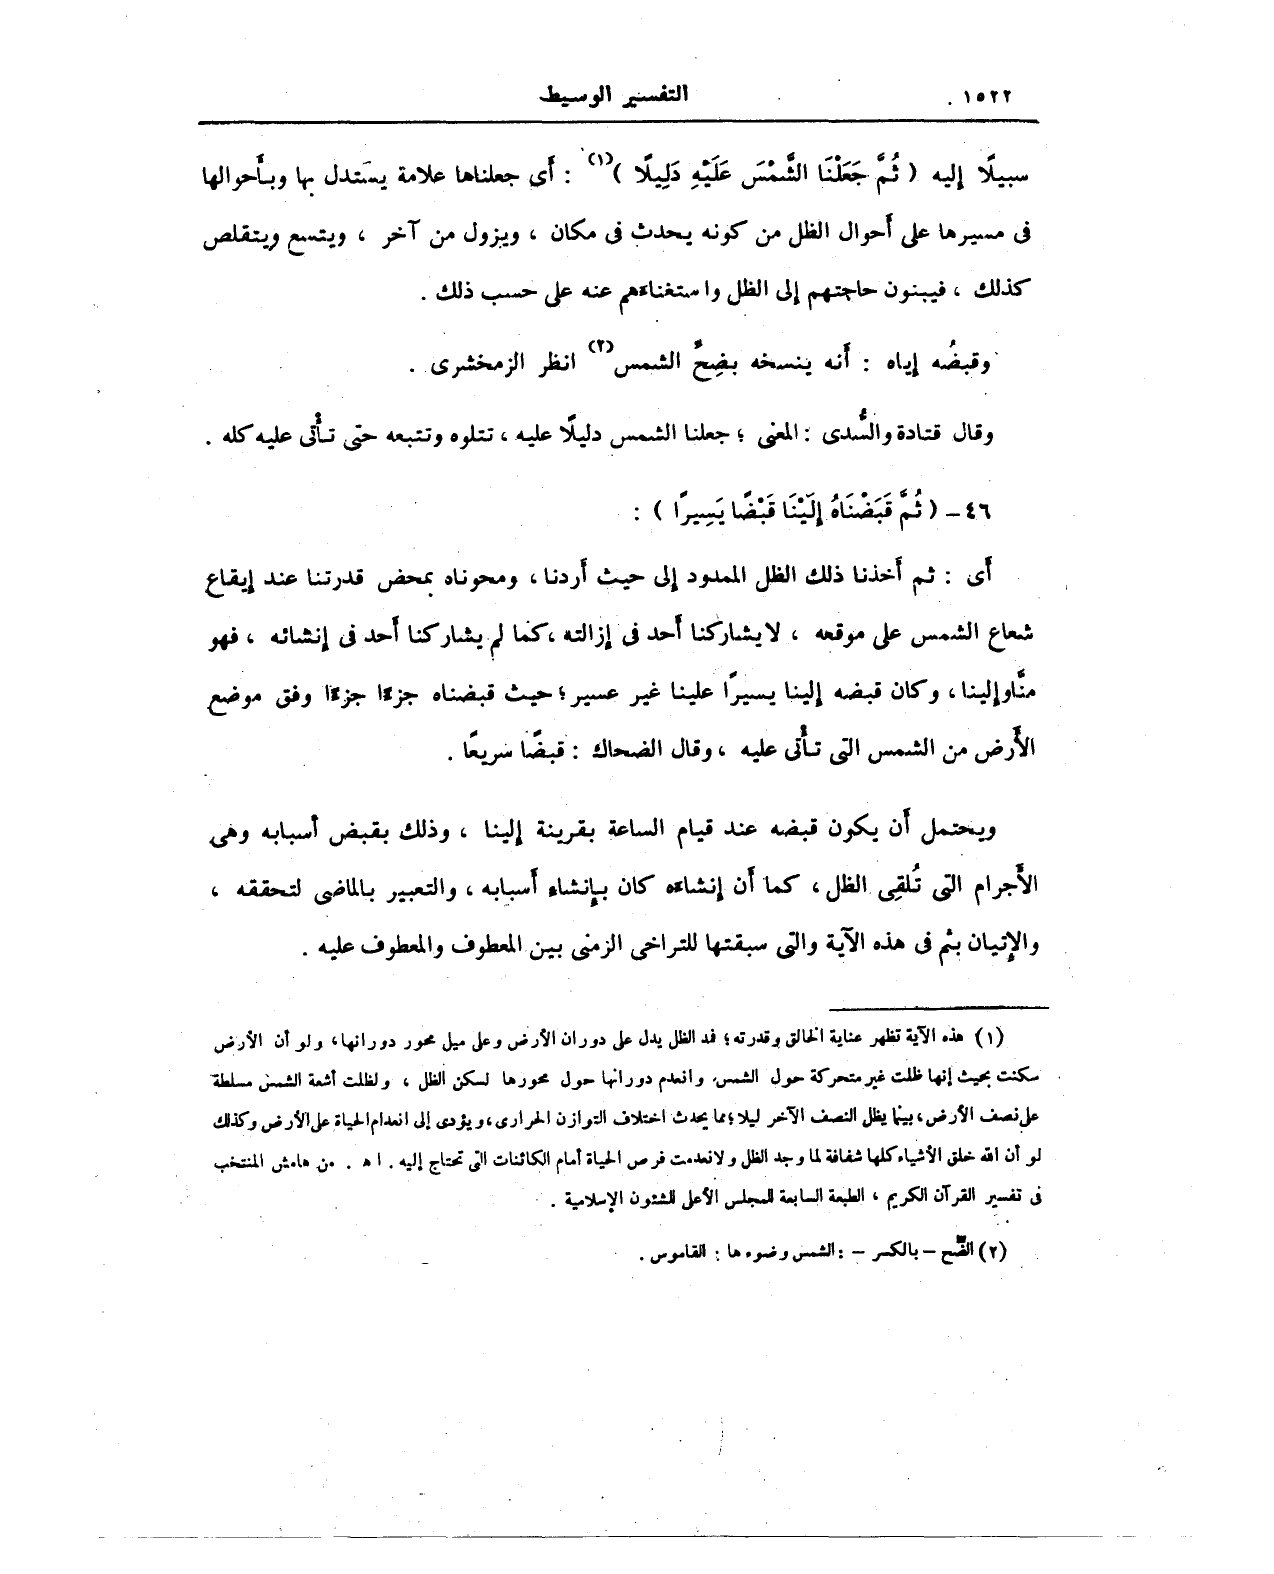 ١٥٢٢ التفسير الوسيط
سبيلًا إليه ( ثُمَّ جَعَلْنَا الشَّمْسَ عَلَيْهِ دَلِيلًا )(١) : أَى جعلناها علامة يستدل بها وبأَحوالها
فى مسيرها على أَحوال الظل من كونه يحدث فى مكان ، ويزول من آخر ، ويتسع ويتقلص
كذلك ، فيبنون حاجتهم إلى الظل واستغناءهم عنه على حسب ذلك .
وقبضُه إياه : أَنه ينسخه بضِحِّ الشمس(٢) انظر الزمخشرى .
وقال قتادة والسُّدى : المعنى ؛ جعلنا الشمس دليلًا عليه ، تتلوه وتتبعه حتى تأْتى عليه كله .
٤٦ – ( ثُمَّ قَبَضْنَاهُ إِلَيْنَا قَبْضًا يَسِيرًا ) :
أَى : ثم أَخذنا ذلك الظل الممدود إلى حيث أَردنا ، ومحوناه بمحض قدرتنا عند إيقاع
شعاع الشمس على موقعه ، لا يشاركنا أَحد فى إزالته ، كما لم يشاركنا أَحد فى إنشائه ، فهو
منَّا وإلينا ، وكان قبضه إلينا يسيرًا علينا غير عسير ؛ حيث قبضناه جزءًا جزءًا وفق موضع
الأَرض من الشمس التى تأْتى عليه ، وقال الضحاك : قبضًا سريعًا .
ويحتمل أَن يكون قبضه عند قيام الساعة بقرينة إلينا ، وذلك بقبض أَسبابه وهى
الأَجرام التى تُلقِى الظل ، كما أَن إنشاءه كان بإنشاء أَسبابه ، والتعبير بالماضى لتحققه ،
والإتيان بثم فى هذه الآية والتى سبقتها للتراخى الزمنى بين المعطوف والمعطوف عليه .
(١) هذه الآية تظهر عناية الخالق وقدرته ؛ فمد الظل يدل على دوران الأرض وعلى ميل محور دورانها ، ولو أن الأرض
سكنت بحيث إنها ظلت غير متحركة حول الشمس وانعدم دورانها حول محورها لسكن الظل ، ولظلت أشعة الشمس مسلطة
على نصف الأرض ، بينما يظل النصف الآخر ليلا ؛ مما يحدث اختلاف التوازن الحرارى ، ويؤدى إلى انعدام الحياة على الأرض وكذلك
لو أن الله خلق الأشياء كلها شفافة لما وجد الظل ولانعدمت فرص الحياة أمام الكائنات التى تحتاج إليه . ا هـ . من هامش المنتخب
فى تفسير القرآن الكريم ، الطبعة السابعة للمجلس الأعلى للشئون الإسلامية .
(٢) الضِّح – بالكسر – : الشمس وضوءها : القاموس .